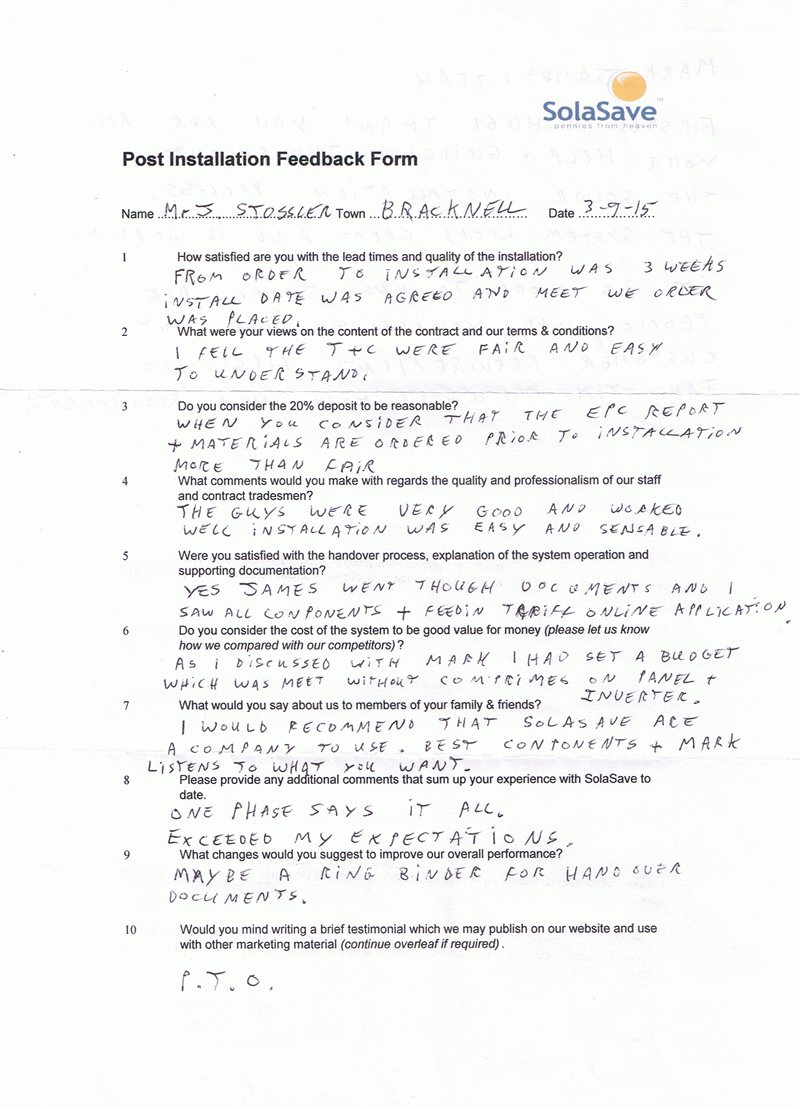 SolaSave™
pennies from heaven
Post Installation Feedback Form
Name Mr J. STOSSLER Town BRACKNELL Date 3-9-15
1 How satisfied are you with the lead times and quality of the installation?
FROM ORDER TO INSTALLATION WAS 3 WEEKS
INSTALL DATE WAS AGREED AND MEET WE ORDER
WAS PLACED.
2 What were your views on the content of the contract and our terms & conditions?
I FELL THE T+C WERE FAIR AND EASY
TO UNDERSTAND.
3 Do you consider the 20% deposit to be reasonable?
WHEN YOU CONSIDER THAT THE EPC REPORT
+ MATERIALS ARE ORDERED PRIOR TO INSTALLATION
MORE THAN FAIR
4 What comments would you make with regards the quality and professionalism of our staff
and contract tradesmen?
THE GUYS WERE VERY GOOD AND WORKED
WELL INSTALLATION WAS EASY AND SENSABLE.
5 Were you satisfied with the handover process, explanation of the system operation and
supporting documentation?
YES JAMES WENT THOUGH DOCUMENTS AND I
SAW ALL CONPONENTS + FEEDIN TARIFF ONLINE APPLICATION.
6 Do you consider the cost of the system to be good value for money (please let us know
how we compared with our competitors)?
AS I DISCUSSED WITH MARK I HAD SET A BUDGET
WHICH WAS MEET WITHOUT COMPRIMES ON PANEL +
INVERTER.
7 What would you say about us to members of your family & friends?
I WOULD RECOMMEND THAT SOLASAVE ARE
A COMPANY TO USE. BEST CONPONENTS + MARK
LISTENS TO WHAT YOU WANT.
8 Please provide any additional comments that sum up your experience with SolaSave to
date.
ONE PHASE SAYS IT ALL.
EXCEEDED MY EXPECTATIONS.
9 What changes would you suggest to improve our overall performance?
MAYBE A RING BINDER FOR HANDOVER
DOCUMENTS.
10 Would you mind writing a brief testimonial which we may publish on our website and use
with other marketing material (continue overleaf if required).
P.T.O.